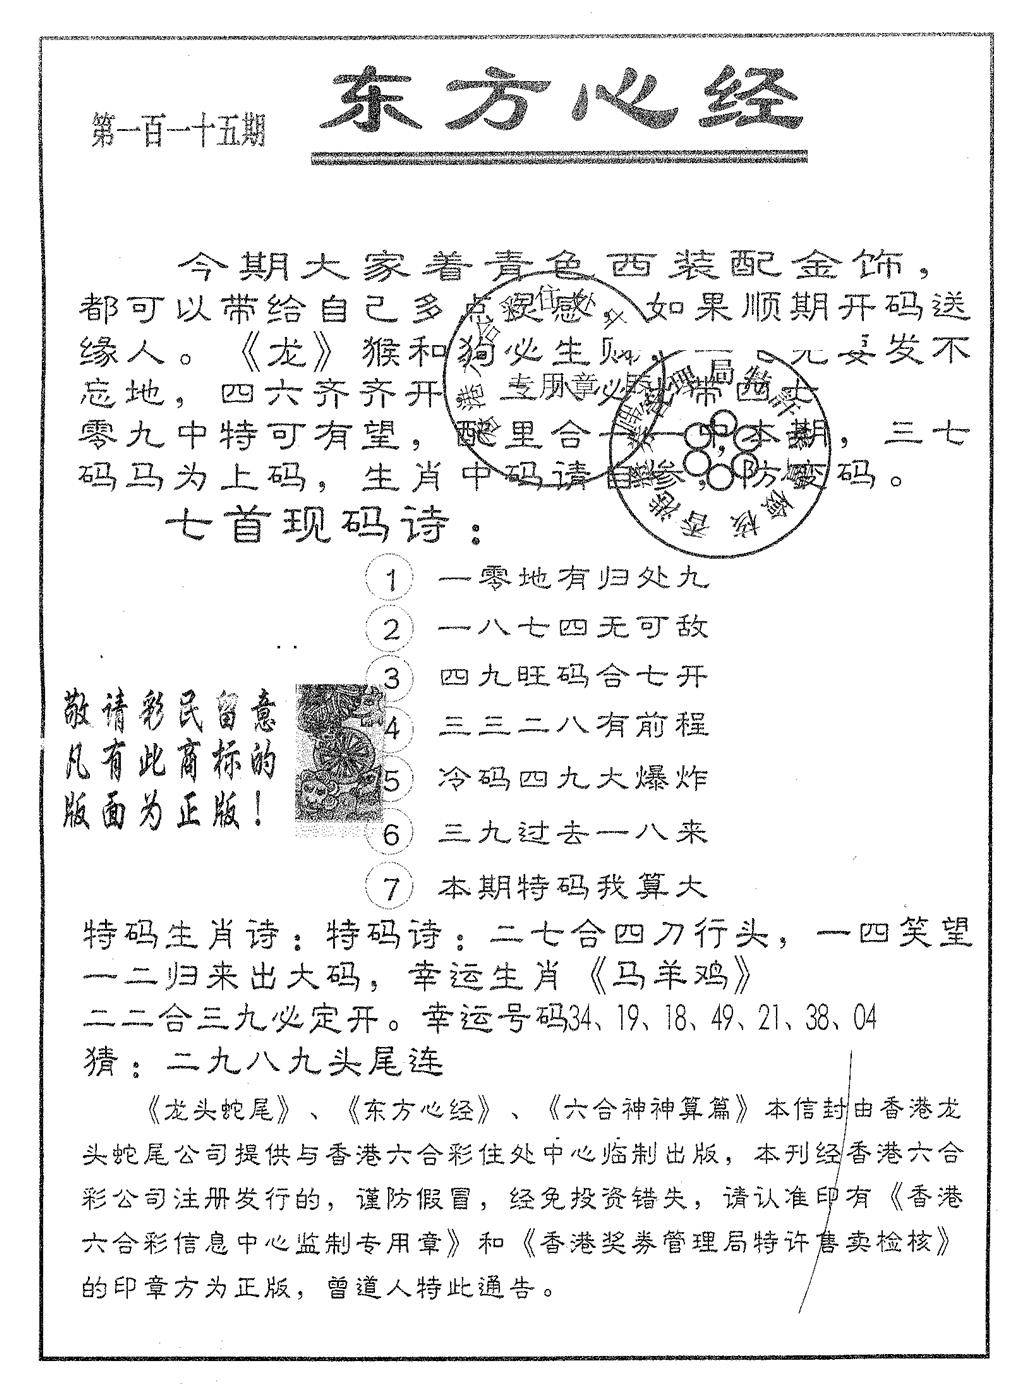 东方心经
第一百一十五期
今期大家着青色西装配金饰，
都可以带给自己多点灵感。如果顺期开码送
缘人。《龙》猴和狗必生财，一 发不
忘地，四六齐齐开 必 带四七
零九中特可有望，配里合一一中本期，三七
码马为上码，生肖中码请自参，防变码。
七首现码诗：
1 一零地有归处九
2 一八七四无可敌
3 四九旺码合七开
4 三三二八有前程
5 冷码四九大爆炸
6 三九过去一八来
7 本期特码我算大
敬请彩民留意
凡有此商标的
版面为正版！
特码生肖诗：特码诗：二七合四刀行头，一四笑望
一二归来出大码，幸运生肖《马羊鸡》
二二合三九必定开。幸运号码34、19、18、49、21、38、04
猜：二九八九头尾连
《龙头蛇尾》、《东方心经》、《六合神神算篇》本信封由香港龙
头蛇尾公司提供与香港六合彩住处中心临制出版，本刊经香港六合
彩公司注册发行的，谨防假冒，经免投资错失，请认准印有《香港
六合彩信息中心监制专用章》和《香港奖券管理局特许售卖检核》
的印章方为正版，曾道人特此通告。
专用章